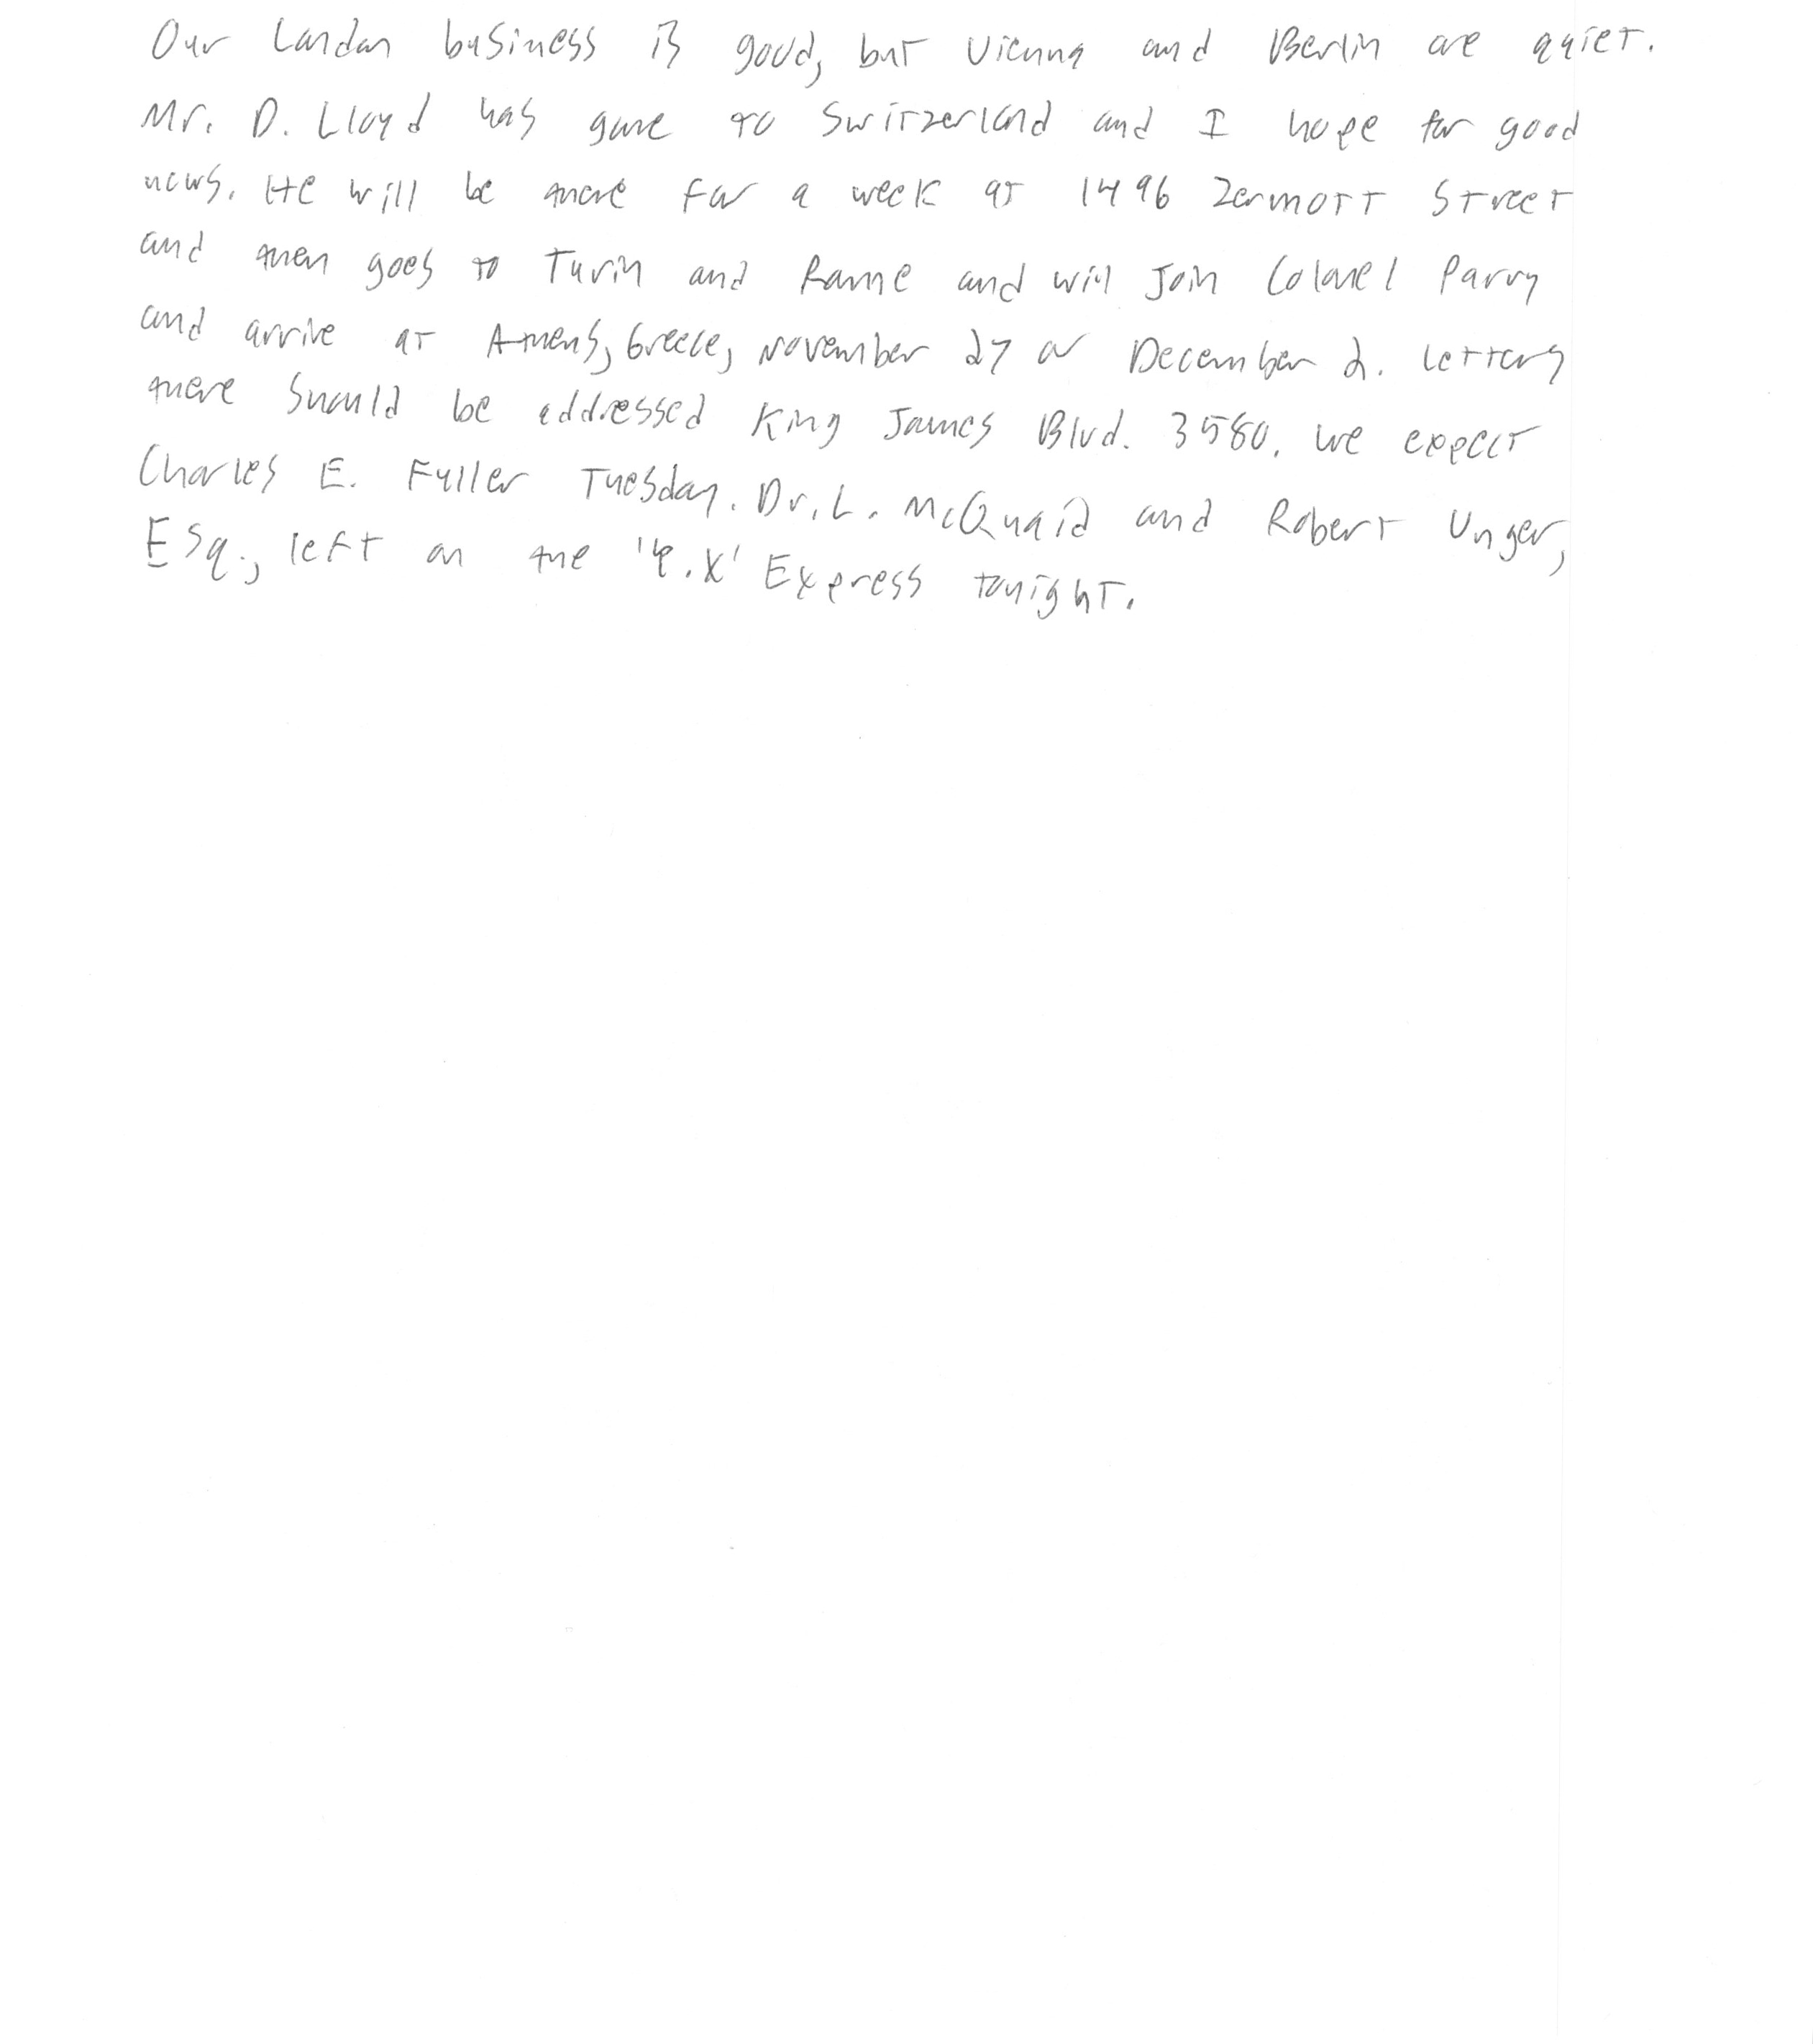 Our London business is good, but Vienna and Berlin are quiet.
Mr. D. Lloyd has gone to Switzerland and I hope for good
news. He will be there for a week at 1496 Zermott Street
and then goes to Turin and Rome and will join Colonel Parry
and arrive at Athens, Greece, November 27 or December 2. Letters
there should be addressed King James Blvd. 3580. We expect
Charles E. Fuller Tuesday. Dr. L. McQuaid and Robert Unger,
Esq., left on the 'Y.X' Express tonight.